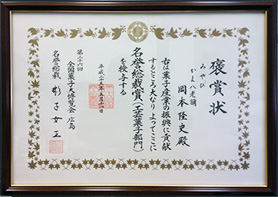 褒賞状
みやび
かま八老舗
岡本隆史殿
右は菓子産業の振興に貢献
するところ大なりよってここに
名誉総裁賞(工芸菓子部門)
を授与する
平成二十五年五月十二日
第二十六回
全国菓子大博覧会・広島
名誉総裁 彬子女王